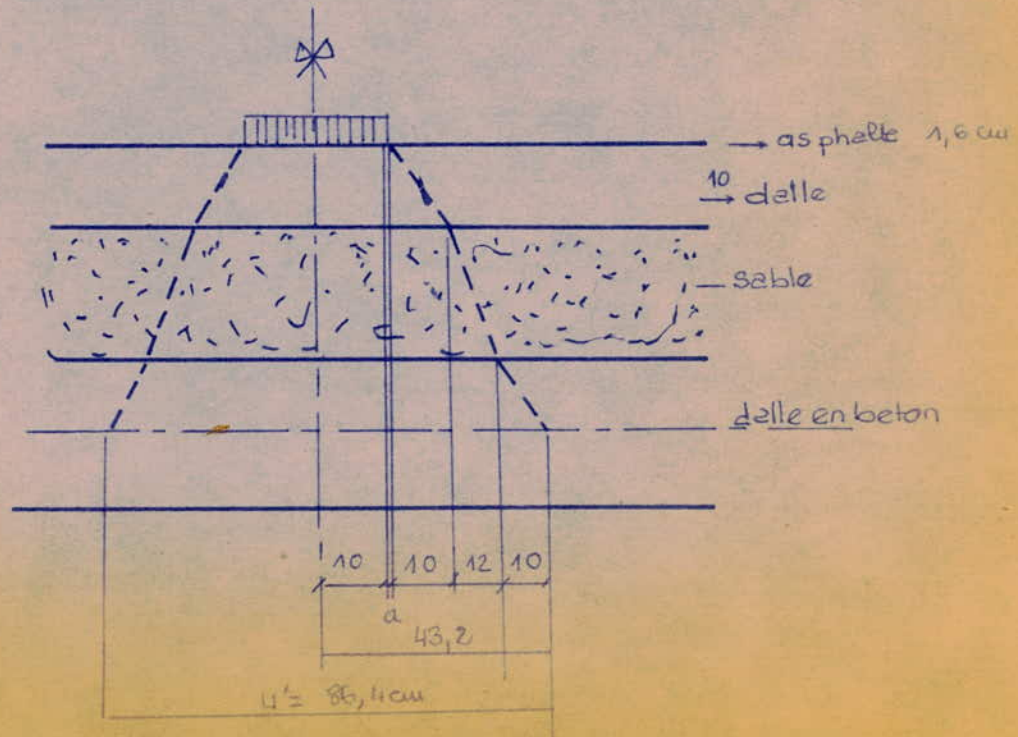 → asphalte 1,6 cm
10
→ dalle
sable
dalle en beton
10 10 12 10
a
43,2
u'= 86,4cm